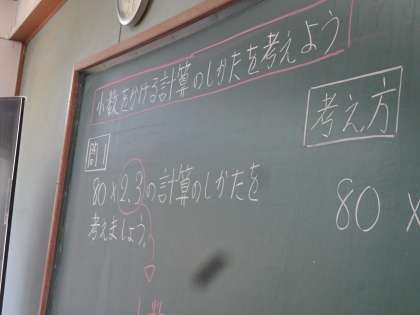 小数をかける計算のしかたを考えよう
問1
80×2.3の計算のしかたを
考えましょう。
考え方
80×